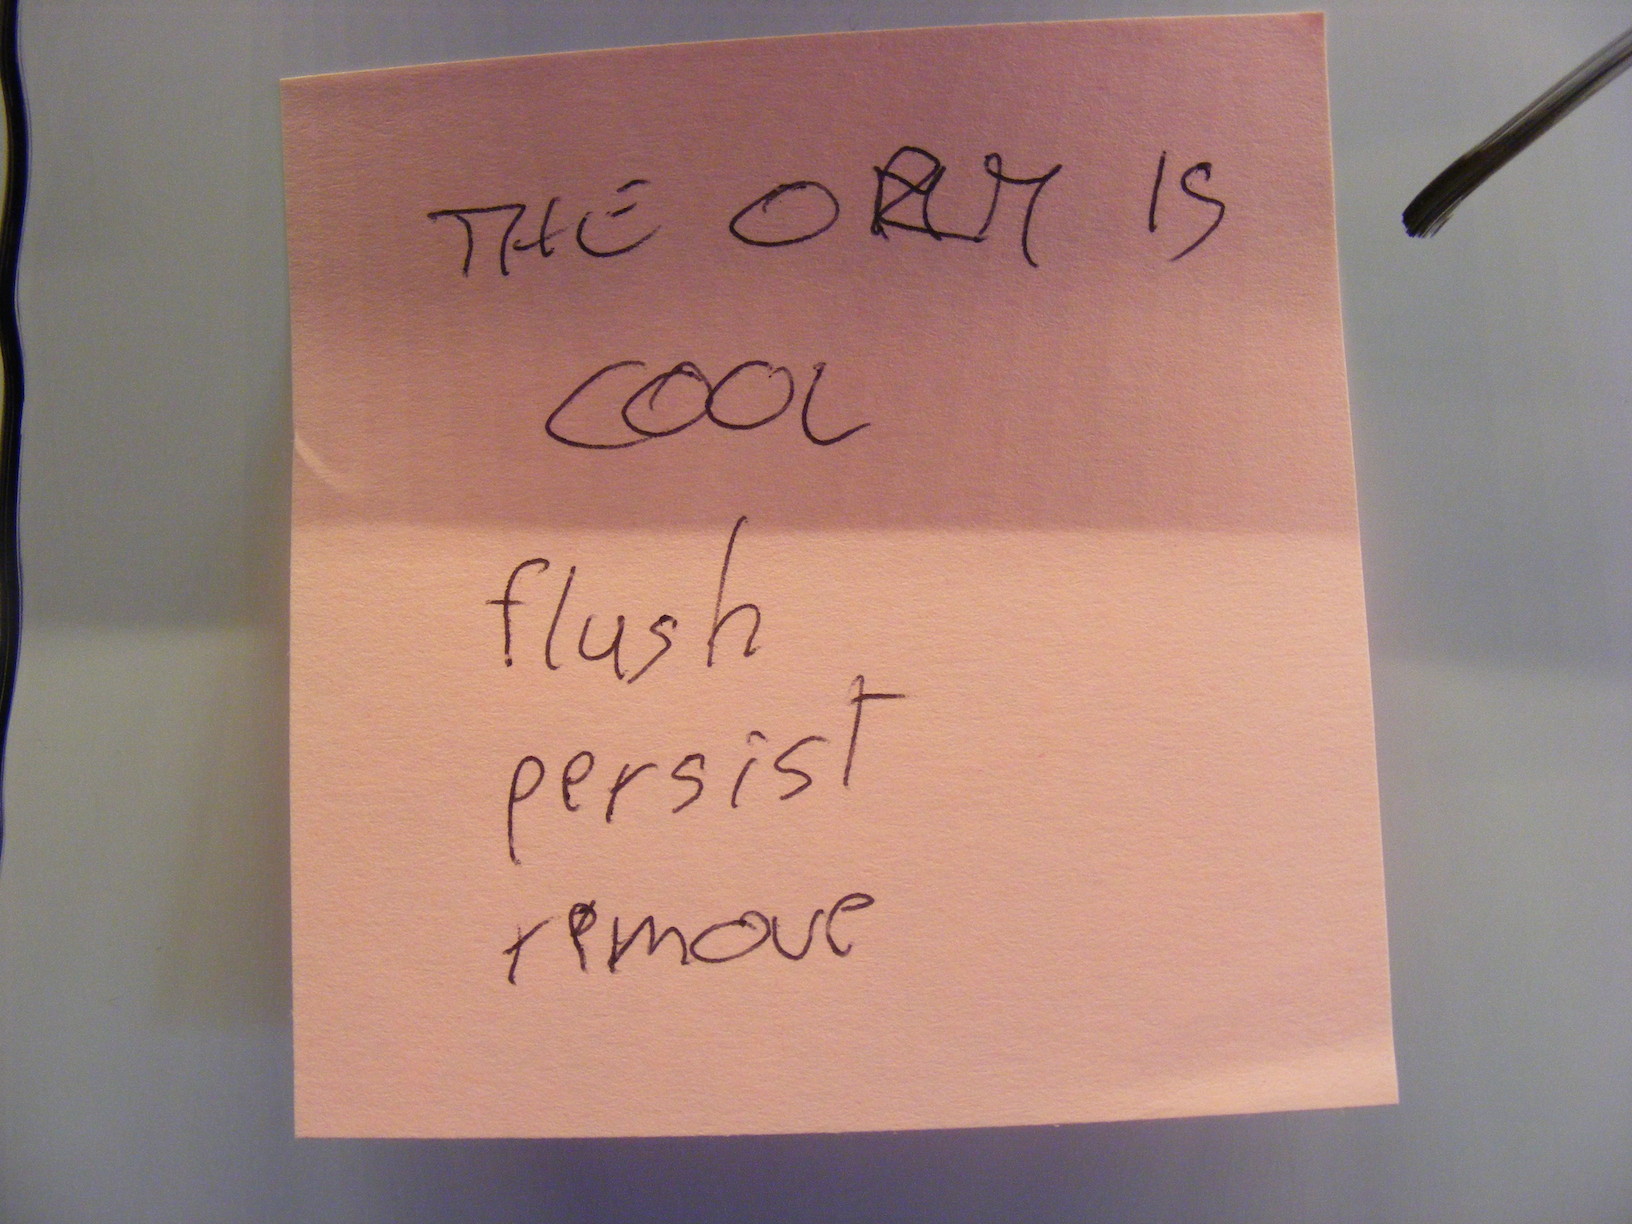 THE ORM IS
COOL
flush
persist
remove